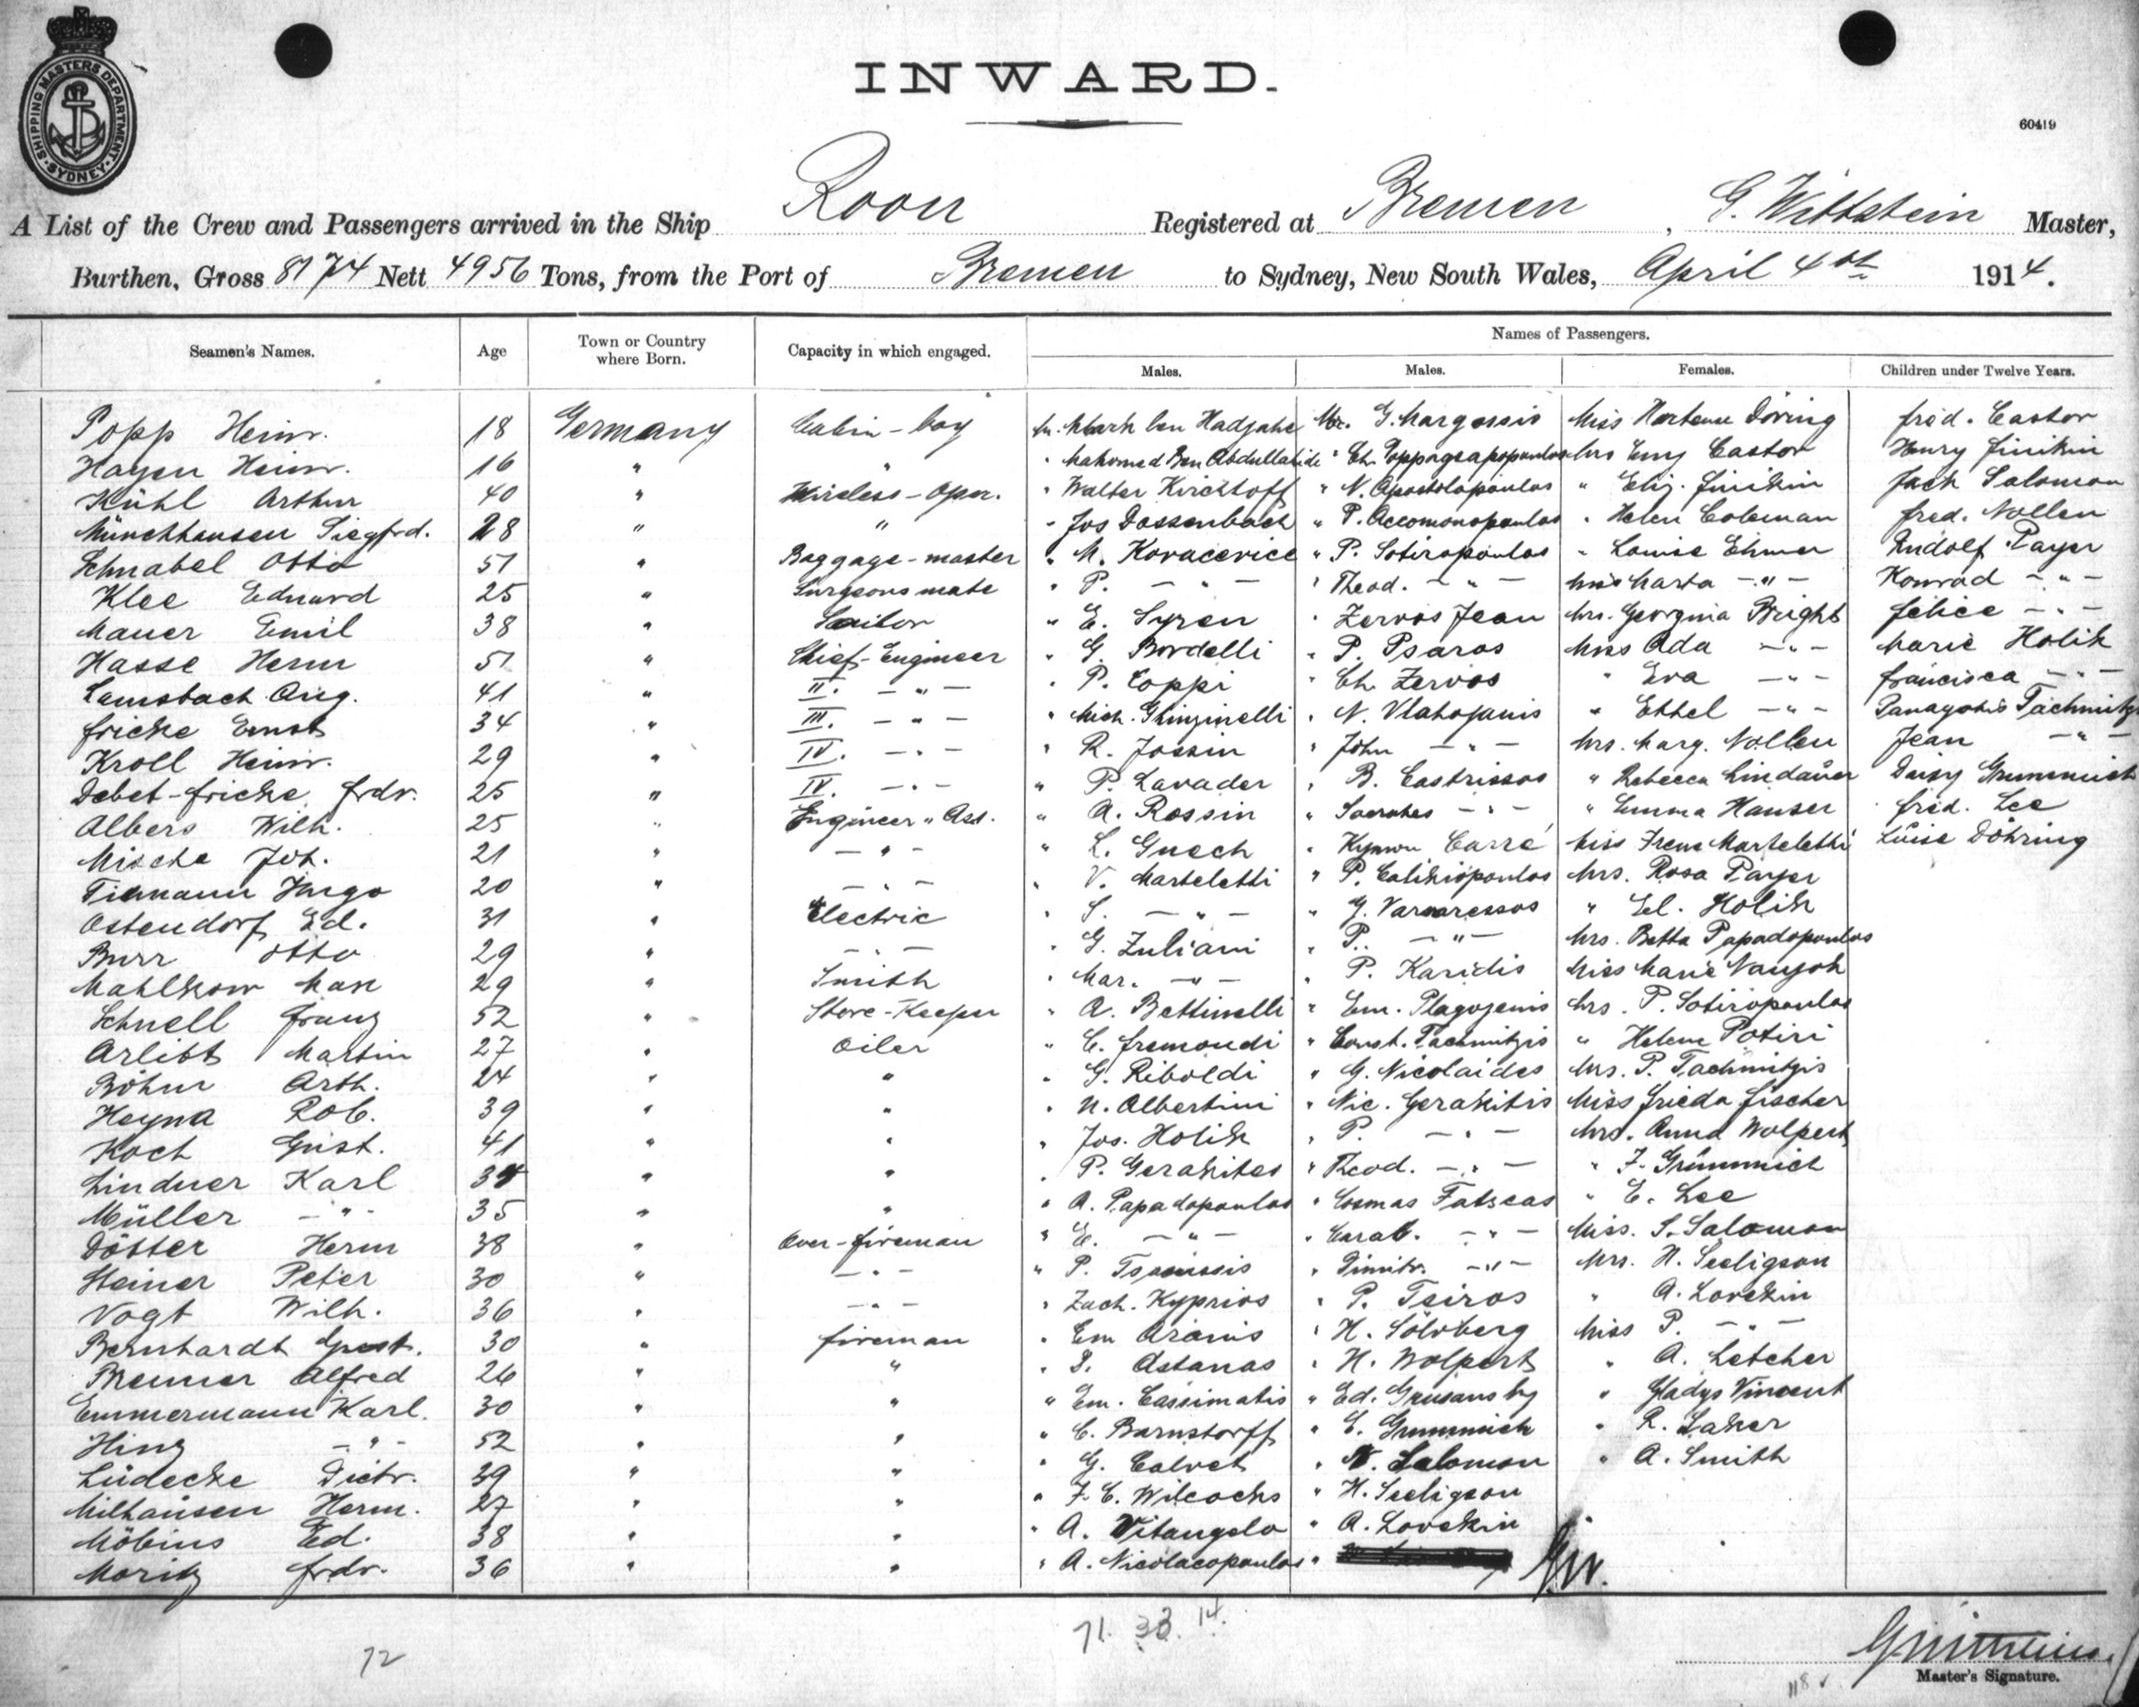 SHIPPING MASTERS DEPARTMENT · SYDNEY ·
INWARD.
60419
A List of the Crew and Passengers arrived in the Ship Roon Registered at Bremen, G. Wittstein Master,
Burthen, Gross 8174 Nett 4956 Tons, from the Port of Bremen to Sydney, New South Wales, April 4th 1914.
Seamen's Names. Age Town or Country where Born. Capacity in which engaged. Names of Passengers.
Males. Males. Females. Children under Twelve Years.
Popp Heinr. 18 Germany Cabin-boy Hadjahe Mr. G. Margossis Miss Hortense Döring fred. Castor
Hayen Heinr. 16 " " " Mahomed Ben " Ch. Mrs Emy Castor Henry finikin
Kühl Arthur 40 " Wireless-Oper. " Walter Kirchhoff " N. Apostolopoulos " Eliz. finikin Jack Salomon
Münchhausen Siegfrd. 28 " " " Jos Dossenbach " P. Accomonopoulos " Helen Coleman fred. Nollen
Schnabel Otto 51 " Baggage-master " M. Kovacevice " P. Sotiropoulos " Louise Ehmer Rudolf Payer
Klee Eduard 25 " Surgeons mate " P. — " — " Theod. — " — Miss Marta — " — Konrad — " —
Mauer Emil 38 " Sailor " E. Syren " Zervos Jean Mrs. Georgina Bright felice — " —
Hasse Herm 51 " Chief-Engineer " G. Bordelli " P. Psaros Miss Ada — " — Marie Holik
Lamsbach Aug. 41 " II. — " — " P. Coppi " Ch. Zervos " Eva — " — francisca — " —
fricke Ernst 34 " III. — " — " Mich. Ghinzinelli " N. Vlahojanis " Ethel — " — Panayotis Tachmitzis
Kroll Heinr. 29 " IV. — " — " R. Jossin " John — " — Mrs. Marg. Nollen Jean — " —
Debet-fricke frdr. 25 " IV. — " — " P. Lavader " B. Castrissos " Rebecca Lindauer Daisy Grummich
Albers Wilh. 25 " Engineer " Ass. " A. Rossin " Socrates — " — " Emma Hauser fred. Lee
Mischa Joh. 21 " — " — " L. Guech " Carré Miss Irene Marteletti Luise Döhring
Tiemann Hugo 20 " — " — " V. Marteletti " P. Calikiopoulos Mrs. Rosa Payer
Ostendorf Ed. 31 " Electric " S. — " — " G. Varvaressos " El. Holik
Burr Otto 29 " — " — " G. Zuliani " P. — " — Mrs. Betta Papadopoulos
Mahlkow Max 29 " Smith " Mar. — " — " P. Karidis Miss Marie
Schnell franz 52 " Store-Keeper " A. Bettinelli " Em. Plagojenis Mrs. P. Sotiropoulos
Arlibt Martin 27 " Oiler " C. fremondi " Const. Tachmitzis " Helene Potiri
Böhm Arth. 24 " " " G. Riboldi " G. Nicolaides Mrs. P. Tachmitzis
Heyna Rob. 39 " " " N. Albertini " Nic. Gerakitis Miss frieda fischer
Koch Gust. 41 " " " Jos. Holik " P. — " — Mrs. Anna Wolpert
Lindner Karl " " " P. Gerakites " Theod. — " — " F. Grümmich
Müller — " — 35 " " " A. Papadopoulos " Cosmas Fatseas " E. Lee
Dötter Herm 38 " Over-fireman " E. — " — " Carab. — " — Miss. S. Salomon
Steiner Peter 30 " — " — " P. " Dimitr. — " — Mrs. H. Seeligson
Vogt Wilh. 36 " — " — " Zach. Kyprios " P. Tsiros " A. Lovekin
Bernhardt Gust. 30 " fireman " Em Aranis " H. Sölvberg Miss P. — " —
Brenner Alfred 26 " " " D. Astanas " H. Wolpert " A. Letcher
Emmermann Karl. 30 " " " Em. Cassimatis " Ed. " Gladys Vincent
Hinz — " — 52 " " " C. Barnstorff " E. Grummich " R. Laker
Lüdecke Dietr. 39 " " " G. Calvet " N. Salomon " A. Smith
Milhausen Herm. 27 " " " F. C. Wilcochs " H. Seeligson
Möbius Ed. 38 " " " A. Vitangelo " A. Lovekin
Moritz frdr. 36 " " " A. Nicolacopoulos "
71. 33. 14.
72
Master's Signature.
118